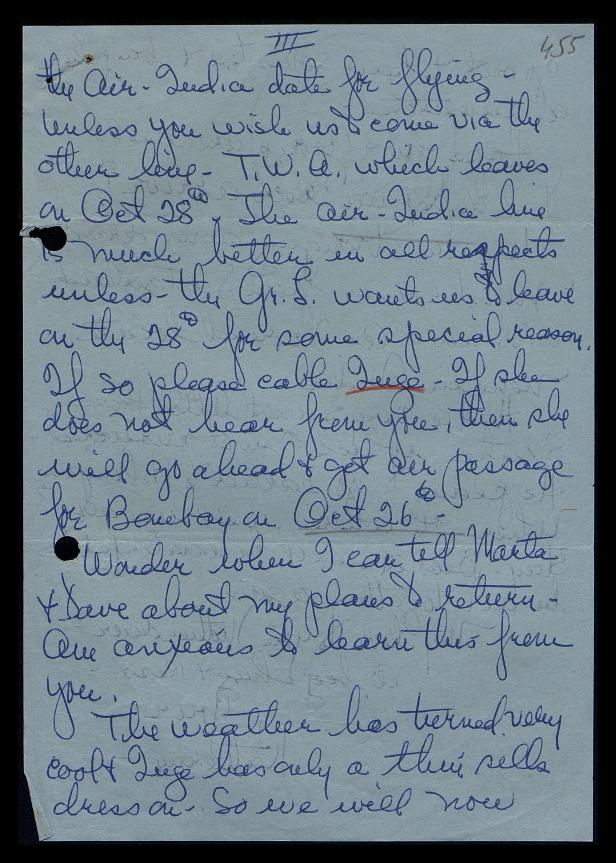 III
455
the Air-India date for flying -
Unless you wish us to come via the
other line - T.W.A. which leaves
on Oct 28th. The Air-India line
is much better in all respects
unless - the Gr. S. wants us to leave
on the 28th for some special reason.
If so please cable Inge - If she
does not hear from you, then she
will go ahead & get our passage
for Bombay on Oct 26th -
Wonder when I can tell Marta
& Dave about my plans to return -
Am anxious to learn this from
you.
The weather has turned very
cool & Inge has only a thin silk
dress on - So we will now